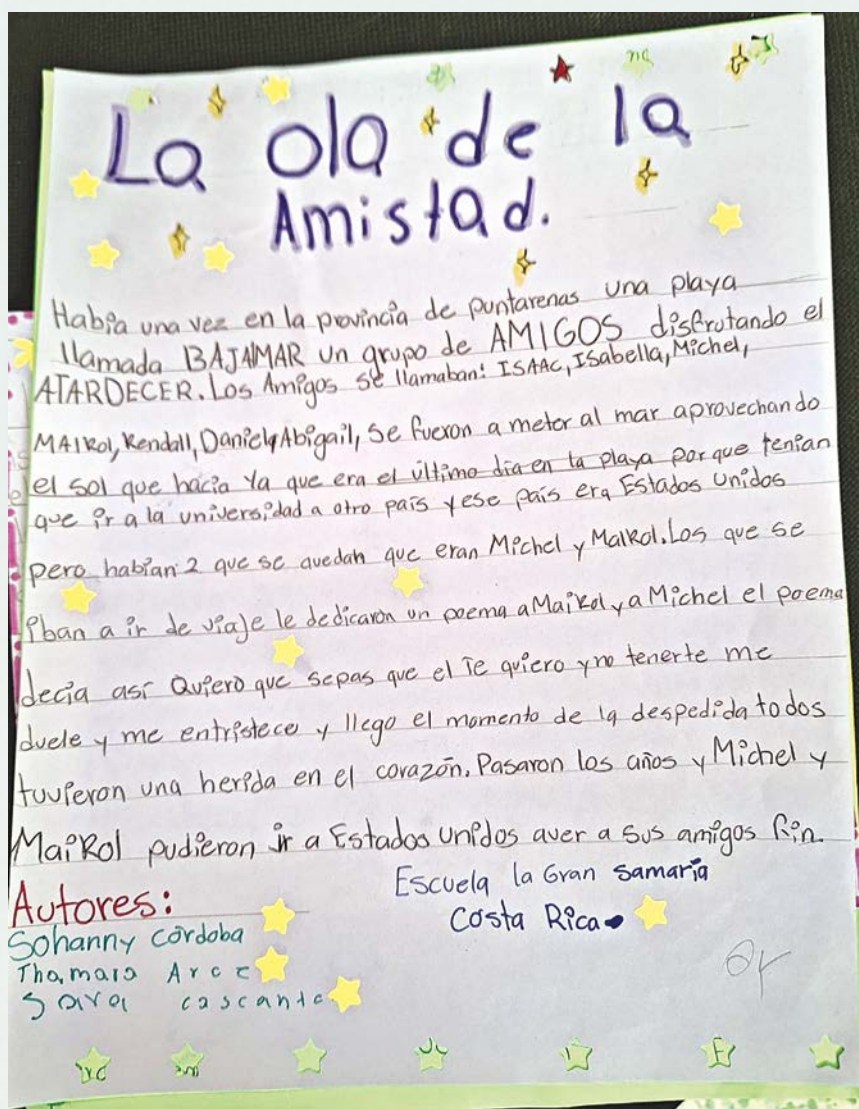 La ola de la
Amistad.
Había una vez en la provincia de puntarenas una playa
llamada BAJAMAR un grupo de AMIGOS disfrutando el
ATARDECER. Los Amigos se llamaban: ISAAC, ISabella, Michel,
MAIKol, Kendall, Daniel y Abigail, Se fueron a meter al mar aprovechando
el sol que hacía Ya que era el último día en la playa porque tenían
que ir a la universidad a otro país y ese país era Estados Unidos
pero habían 2 que se quedan que eran Michel y Maikol. Los que se
iban a ir de viaje le dedicarón un poema a Maikol y a Michel el poema
decía así Quiero que sepas que el Te quiero y no tenerte me
duele y me entristece y llego el momento de la despedida todos
tuvieron una herida en el corazón. Pasaron los años y Michel y
MaiKol pudieron ir a Estados Unidos aver a sus amigos fin.
Escuela la Gran Samaria
Costa Rica
Autores:
Sohanny córdoba
Thamara Arce
Sara cascante